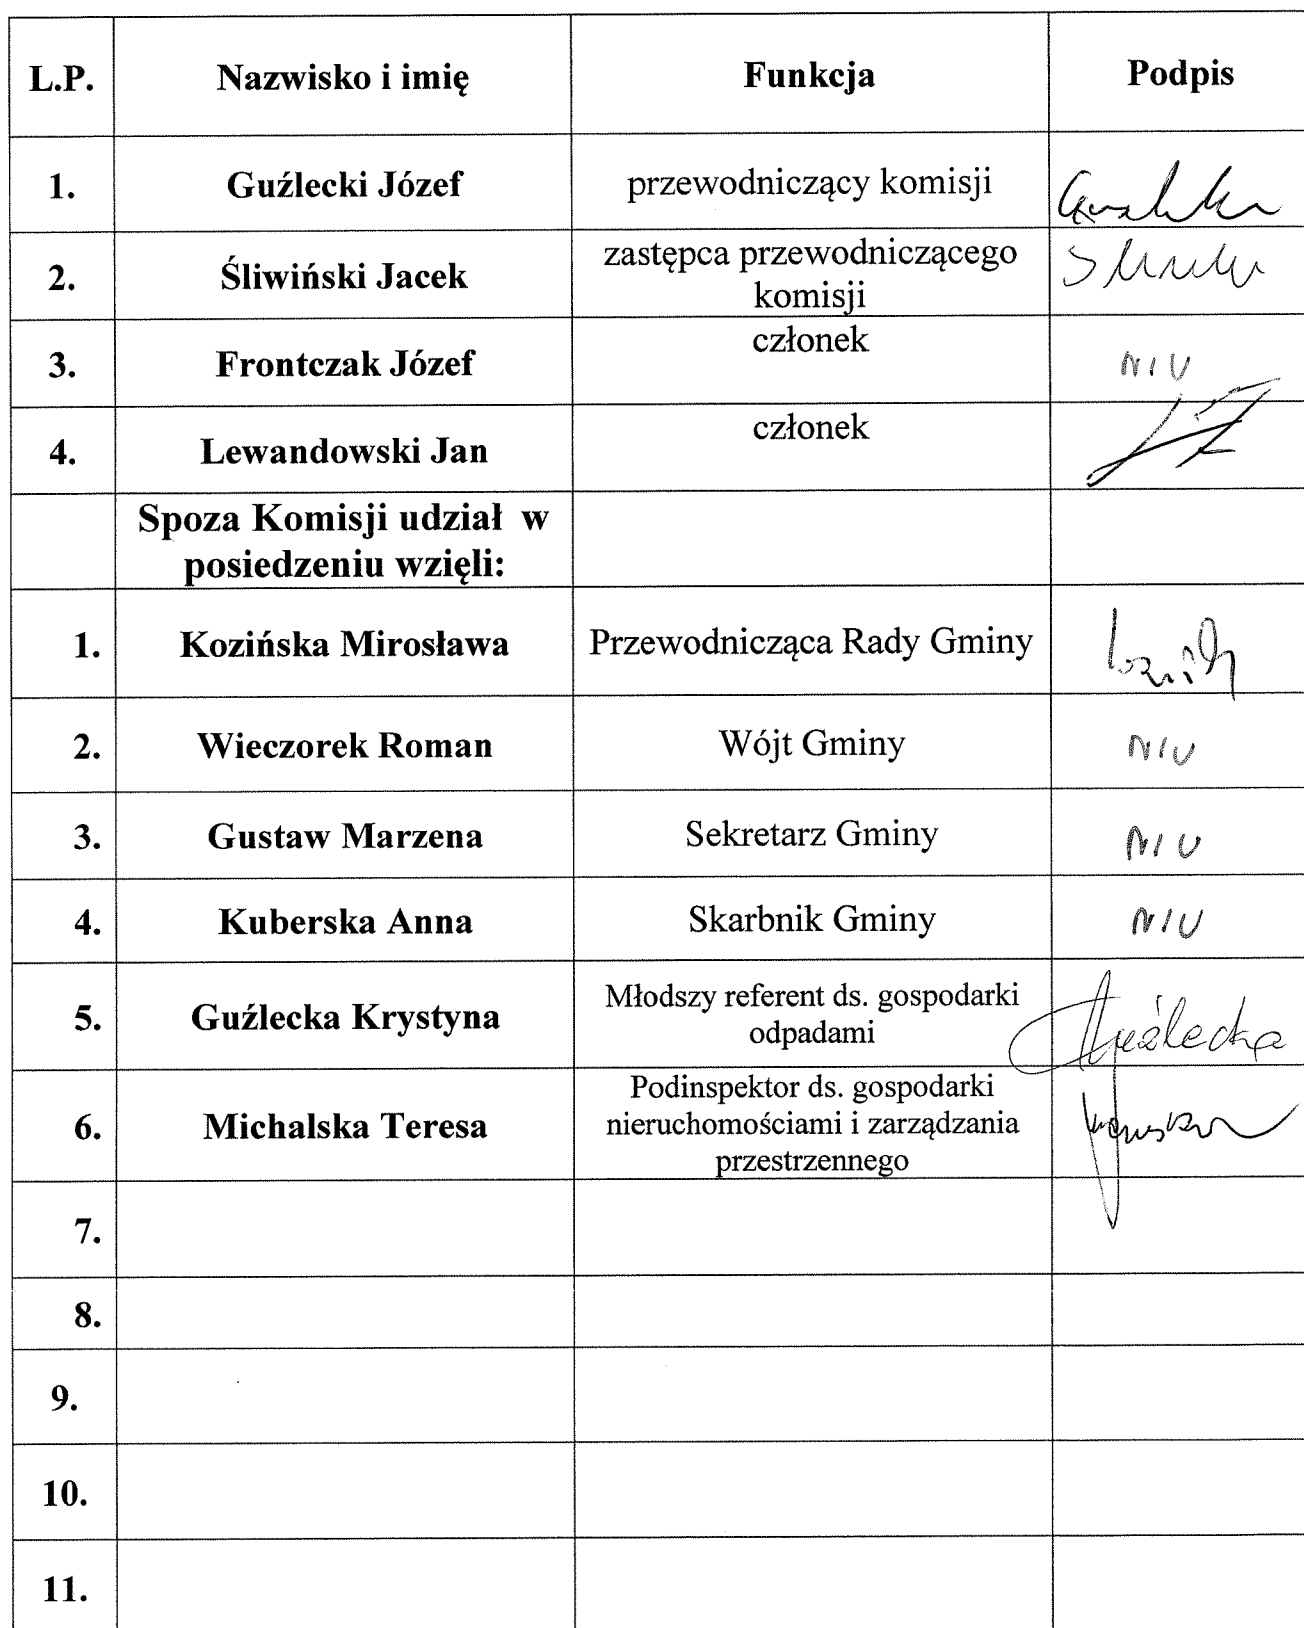 L.P. Nazwisko i imię Funkcja Podpis
1. Guźlecki Józef przewodniczący komisji
2. Śliwiński Jacek zastępca przewodniczącego
komisji
3. Frontczak Józef członek NIU
4. Lewandowski Jan członek
Spoza Komisji udział w
posiedzeniu wzięli:
1. Kozińska Mirosława Przewodnicząca Rady Gminy
2. Wieczorek Roman Wójt Gminy NIU
3. Gustaw Marzena Sekretarz Gminy NIU
4. Kuberska Anna Skarbnik Gminy NIU
5. Guźlecka Krystyna Młodszy referent ds. gospodarki
odpadami Guźlecka
6. Michalska Teresa Podinspektor ds. gospodarki
nieruchomościami i zarządzania
przestrzennego
7.
8.
9.
10.
11.